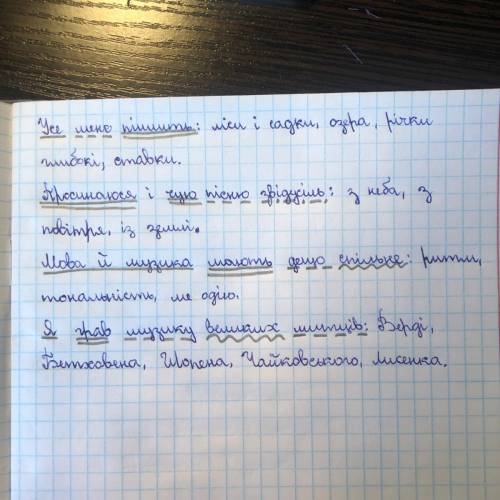 Усе мене тішить: ліси і садки, озера, річки
глибокі, ставки.
Просинаюся і чую пісню звідусіль: з неба, з
повітря, із землі.
Мова й музика мають дещо спільне: ритм,
тональність, мелодію.
Я грав музику великих митців: Верді,
Бетховена, Шопена, Чайковського, Лисенка.